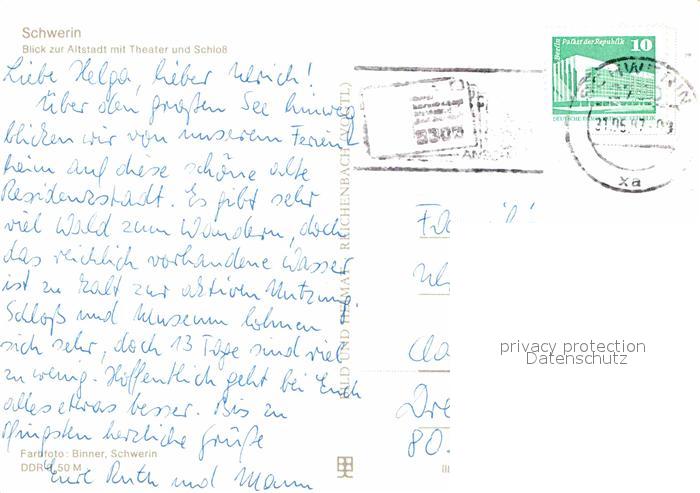 Schwerin
Blick zur Altstadt mit Theater und Schloß
Liebe Helga, lieber Ulrich!
Über den großen See hinweg
blicken wir von unserem Ferien
heim auf diese schöne alte
Residenzstadt. Es gibt sehr
viel Wald zum Wandern, doch
das reichlich vorhandene Wasser
ist zu kalt zur aktiven Nutzung.
Schloß und Museum lohnen
sich sehr, doch 13 Tage sind viel
zu wenig. Hoffentlich geht bei Euch
alles etwas besser. Bis zu
Pfingsten herzliche Grüße
Eure Ruth und Mann
Farbfoto: Binner, Schwerin
DDR 0,50 M
BILD UND HEIMAT REICHENBACH (VOGTL)
Berlin Palast der Republik
10
DEUTSCHE DEMOKRATISCHE REPUBLIK
SCHWERIN
31.05.87
xa
Fa
Ul
Dre
80
privacy protection
Datenschutz